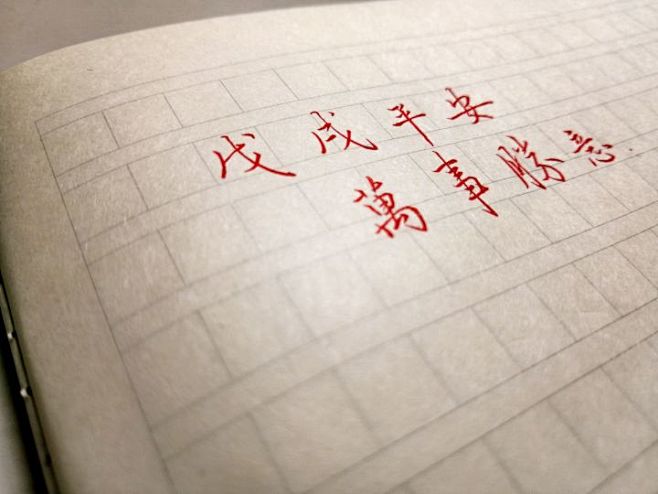 戊戌平安
萬事勝意.